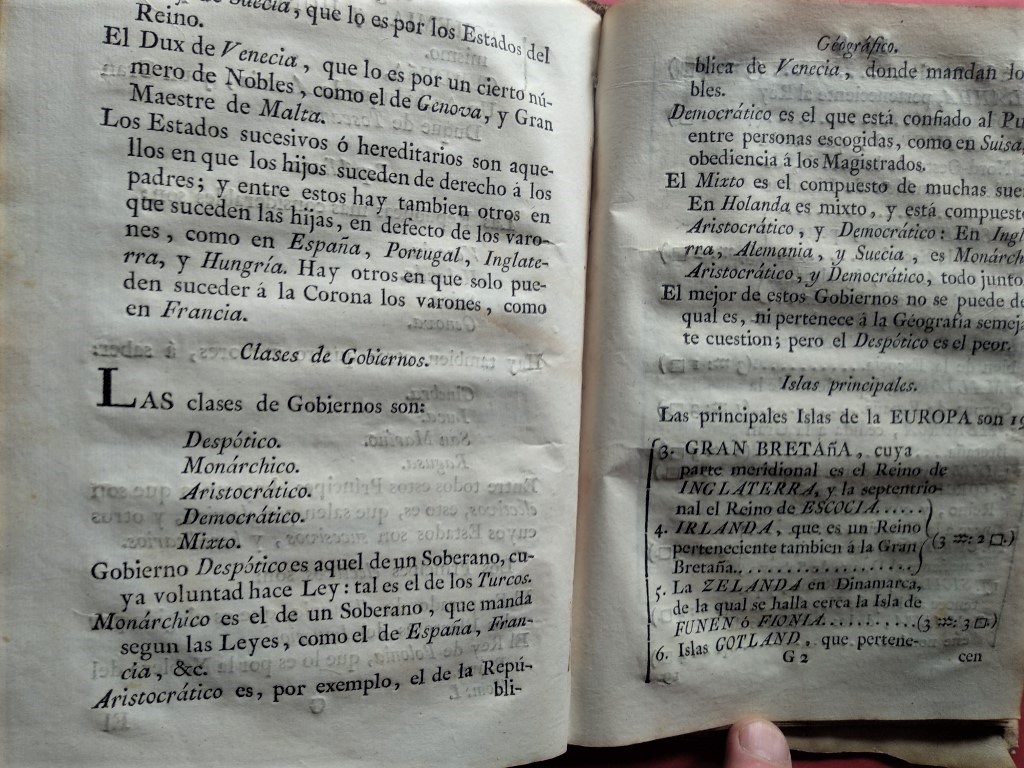 de Suecia, que lo es por los Estados del
Reino.
El Dux de Venecia, que lo es por un cierto nú-
mero de Nobles, como el de Genova, y Gran
Maestre de Malta.
Los Estados sucesivos ó hereditarios son aque-
llos en que los hijos suceden de derecho á los
padres; y entre estos hay tambien otros en
que suceden las hijas, en defecto de los varo-
nes, como en España, Portugal, Inglate-
rra, y Hungría. Hay otros en que solo pue-
den suceder á la Corona los varones, como
en Francia.
Clases de Gobiernos.
LAS clases de Gobiernos son:
Despótico.
Monárchico.
Aristocrático.
Democrático.
Mixto.
Gobierno Despótico es aquel de un Soberano, cu-
ya voluntad hace Ley: tal es el de los Turcos.
Monárchico es el de un Soberano, que manda
segun las Leyes, como el de España, Fran-
cia, &c.
Aristocrático es, por exemplo, el de la Repú-
bli-
Géográfico.
blica de Venecia, donde mandan
bles.
Democrático es el que está confiado al
entre personas escogidas, como en Suisa,
obediencia á los Magistrados.
El Mixto es el compuesto de muchas
En Holanda es mixto, y está compuesto
Aristocrático, y Democrático: En Ingl
rra, Alemania, y Suecia, es Monárch
Aristocrático, y Democrático, todo junto.
El mejor de estos Gobiernos no se puede
qual es, ni pertenece á la Géografia semeja
te cuestion; pero el Despótico es el peor.
Islas principales.
Las principales Islas de la EUROPA son
3. GRAN BRETAñA, cuya
parte meridional es el Reino de
INGLATERRA, y la septentrio-
nal el Reino de ESCOCIA.....
4. IRLANDA, que es un Reino
perteneciente tambien á la Gran (3 ♓: 2 □.)
Bretaña...................
5. La ZELANDA en Dinamarca,
de la qual se halla cerca la Isla de
FUNEN ó FIONIA..........(3 ♓: 3 □.)
6. Islas GOTLAND, que pertene-
G 2 cen